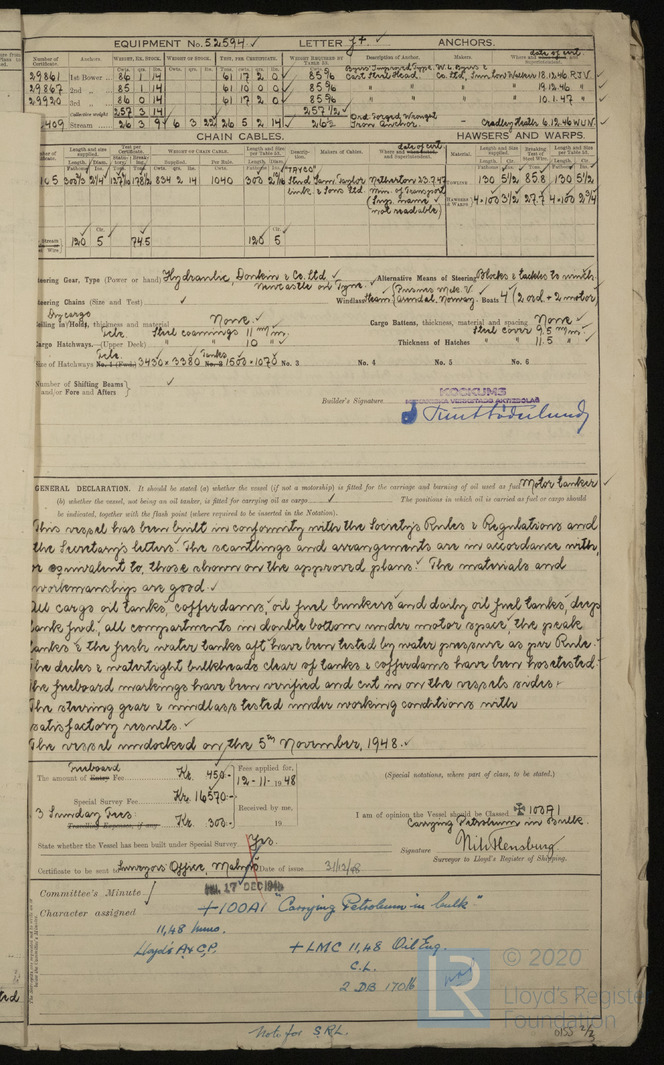 EQUIPMENT No. 52594 LETTER f† ANCHORS.
Number of Certificate. Anchors. WEIGHT, EX. STOCK. WEIGHT OF STOCK. TEST, PER CERTIFICATE. WEIGHT REQUIRED BY TABLE 53. Description of Anchor. Makers. Where and date of cert.
29861 1st Bower 86 1 14 61 17 2 0 85 96 Byers Improved Type W.L. Byers & Co. Ltd, Sunderland 18.12.46 R.J.V.
29867 2nd 85 1 14 61 10 0 0 85 96 Cast Steel Head 19.12.46
29920 3rd 86 0 14 61 17 2 0 85 96 10.1.47
Collective weight 257 3 14 257 1/2
409 Stream 26 3 9 6 3 22 26 5 2 14 26 1/2 Ord Forged Wrought Iron anchor. Cradley Heath 6.12.46 W.U.N.
CHAIN CABLES. HAWSERS AND WARPS.
Length and size supplied. Test per Certificate WEIGHT OF CHAIN CABLE. Length and size per Table 53. Description. Makers of Cables. Where and date of cert and Superintendent. Material. Length and size supplied. Breaking Test of Steel Wire. Length and size per Table 53.
834 2 14 1040 300 "TAYCO" Stud Link Sam. Taylor & Sons Ltd. Netherton 23.7.47 Min. of Transport (Sup. name not readable) 130 5 1/2 85.8 130 5 1/2
HAWSERS & WARPS 4×100 3 1/2 27.7 4×100 2 3/4
120 5 74.5 120 5
Steering Gear, Type (Power or hand) Hydraulic, Donkin & Co. Ltd Newcastle oil Type. Alternative Means of Steering Blocks & tackles to winch
Steering Chains (Size and Test) Windlass Steam Arendal, Norway. Boats 4 (2 ord + 2 motor)
Ceiling in Holds, thickness and material None. Cargo Battens, thickness, material and spacing None
Cargo Hatchways.—(Upper Deck) Steel coamings 11 mm. 10 Thickness of Hatches Steel cover 9.5 mm. 11.5
Size of Hatchways No. 1 (Fwd.) 3430 × 3380 Tanks No. 2 1500 × 1070 No. 3 No. 4 No. 5 No. 6
Number of Shifting Beams and/or Fore and Afters
Builder's Signature
KOCKUMS
MEKANISKA VERKSTADS AKTIEBOLAG
GENERAL DECLARATION. It should be stated (a) whether the vessel (if not a motorship) is fitted for the carriage and burning of oil used as fuel Motor tanker
(b) whether the vessel, not being an oil tanker, is fitted for carrying oil as cargo The positions in which oil is carried as fuel or cargo should
be indicated, together with the flash point (where required to be inserted in the Notation).
This vessel has been built in conformity with the Society's Rules & Regulations and
the Secretary's letters. The scantlings and arrangements are in accordance with,
or equivalent to, those shown on the approved plans. The materials and
workmanship are good.
All cargo oil tanks, cofferdams, oil fuel bunkers and daily oil fuel tanks, deep
tank fwd, all compartments in double bottom under motor space, the peak
tanks & the fresh water tanks aft have been tested by water pressure as per Rule.
The decks & watertight bulkheads clear of tanks & cofferdams have been hosetested.
The freeboard markings have been verified and cut in on the vessels sides.
The steering gear & windlass tested under working conditions with
satisfactory results.
The vessel undocked on the 5th November, 1948.
Freeboard
The amount of Entry Fee Kr. 450:- Fee applied for, 12-11-1948 (Special notations, where part of class, to be stated.)
Special Survey Fee Kr. 16570:-
3 Sunday Fees Received by me,
Travelling Expenses, if any Kr. 300:- 19
I am of opinion the Vessel should be Classed ✠ 100A1
Carrying Petroleum in Bulk.
State whether the Vessel has been built under Special Survey Yes.
Signature Nils Flensburg
Surveyor to Lloyd's Register of Shipping.
Certificate to be sent to Surveyors Office, Malmö Date of issue 31/12/48
17 DEC 1948
Committee's Minute
Character assigned +100A1 "Carrying Petroleum in bulk."
11,48 Mmo.
Lloyd's A & C.P. +LMC 11,48 Oil Eng.
C.L.
2 DB 170 lb
Note for S.R.L.
© 2020
LR
Lloyd's Register
Foundation
0153 2/2